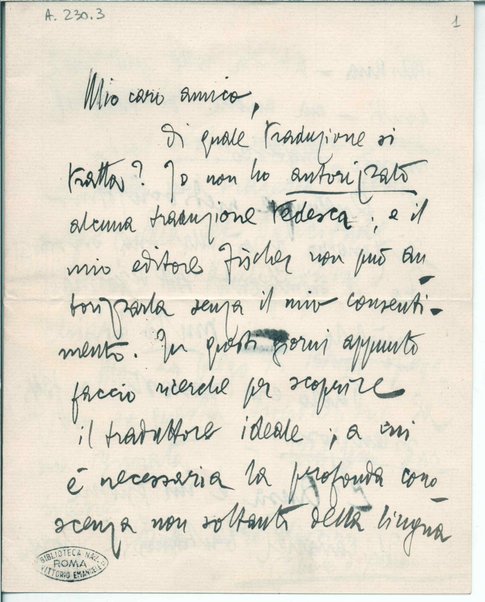 A. 230.3
1
Mio caro amico,
di quale traduzione si
tratta? Io non ho autorizzato
alcuna traduzione tedesca; e il
mio editore Fischer non può au
torizzarla senza il mio consenti-
mento. In questi giorni appunto
faccio ricerche per scoprire
il traduttore ideale, a cui
è necessaria la profonda cono
scenza non soltanto della lingua
BIBLIOTECA NAZ.
ROMA
VITTORIO EMANUELE